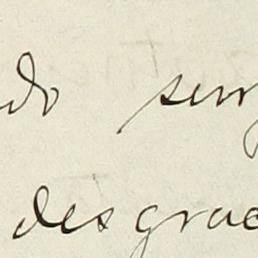 do sem
desgrac